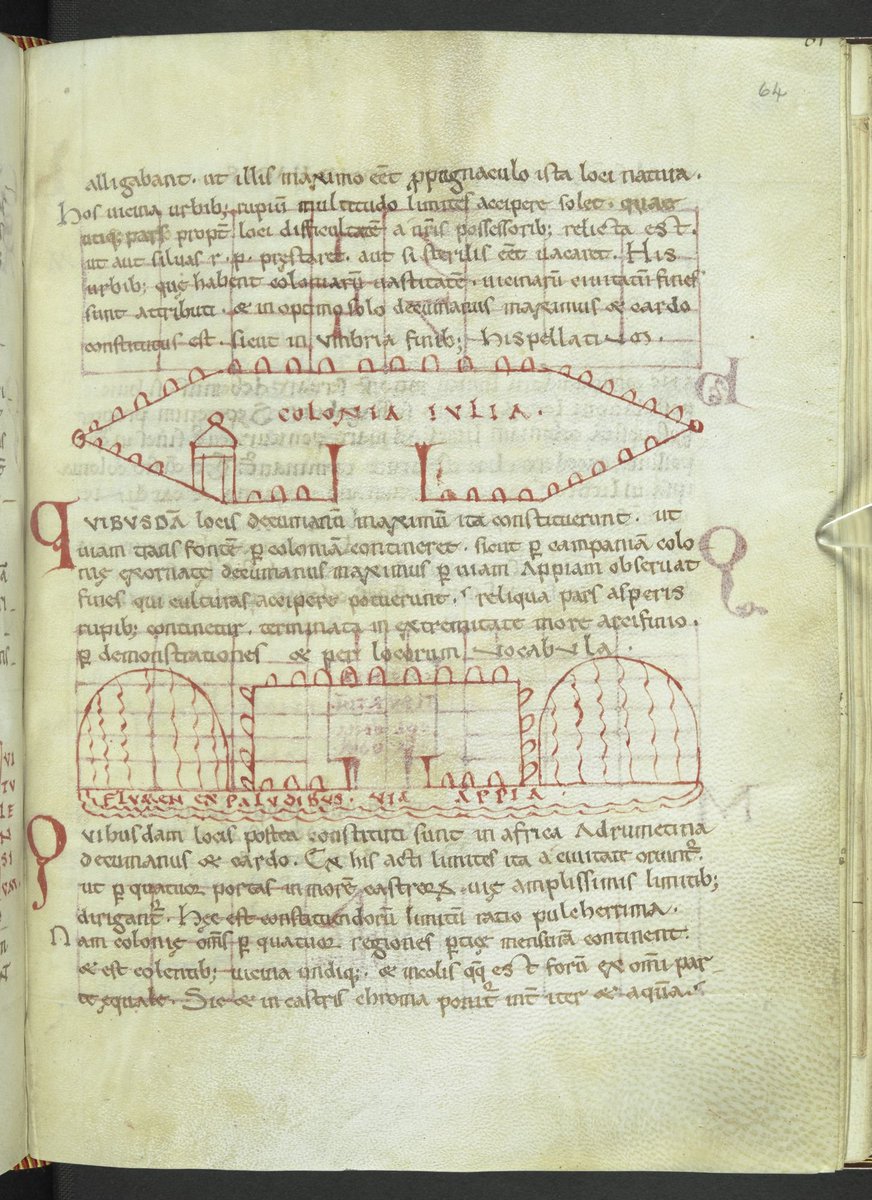 64
alligabant. ut illis maximo eēt ꝓpugnaculo ista loci natura.
Hos uicina urbib; rupiū multitudo limites accipere solet. quare
utiq; pars propt̄ loci difficultatē a nr̄is possessorib; relicta est.
ut aut siluas r. p. pręstaret. aut si sterilis eēt uacaret. His
urbib; quę habent coloniarū uastitatē. uicinarū ciuitatū fines
sunt attributi. & in optimo solo decumanus maximus & cardo
constitutus est. sicut in umbria finib; hispellatium.
COLONIA IULIA.
QUIBUSDĀ locis decumanū maximū ita constituerunt. ut
uiam trans fontē ꝑ coloniā contineret. sicut ꝑ campaniā colo
nię exornatę decumanus maximus ꝑ uiam Appiam obseruat
fines qui culturas accipere potuerunt. reliqua pars asperis
rupib; continetur. terminata in extremitate more arcifinio.
ꝑ demonstrationes & per locorum uocabula.
FLUMEN EX PALUDIBUS. VIA APPIA
Quibusdam locis postea constituti sunt in africa Adrumetina
decumanus & cardo. Ex his acti limites ita a ciuitate oriunt̄.
ut ꝑ quatuor portas in morē castrorum uię amplissimis limitib;
dirigant̄. Hęc est constituendorū limitū ratio pulcherrima.
Nam colonię om̄s ꝑ quatuor regiones ꝑticę mensurā continent.
& est colentib; uicina undiq;. & incolis qq̄ est forū ex omni par
te equale. Sic & in castris chroma ponit̄ int̄ iter & aquā.